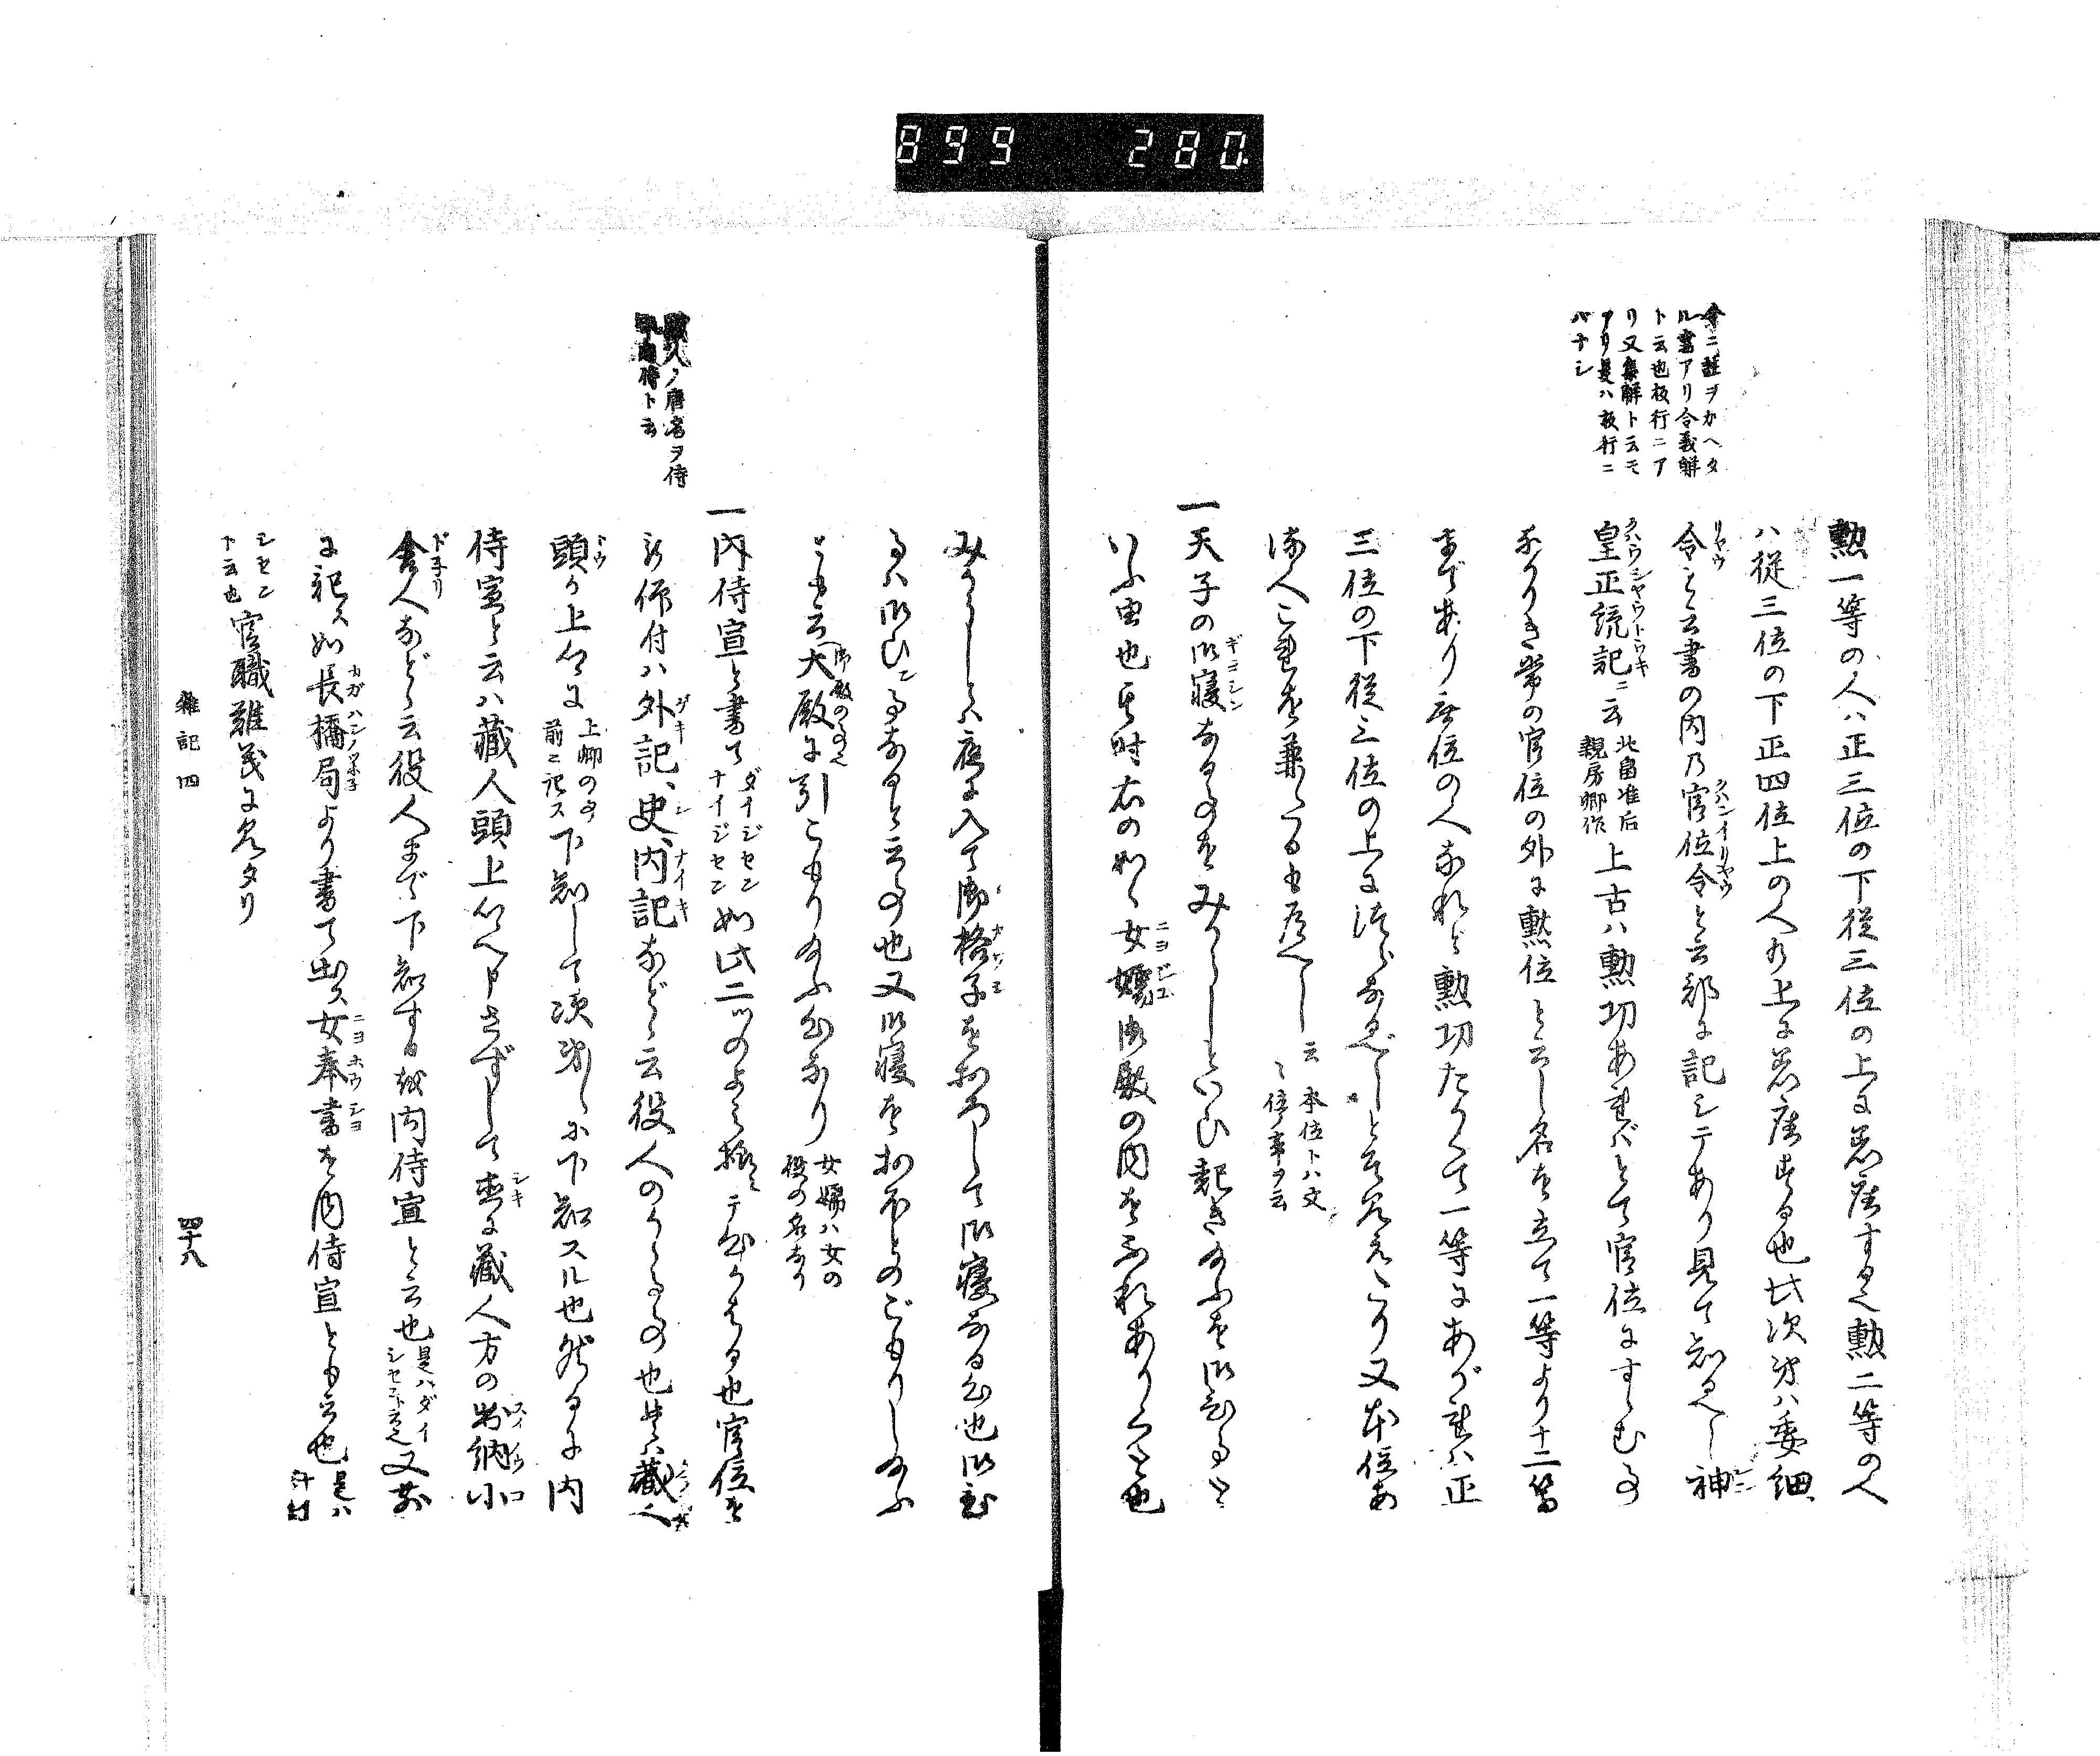 899 280.
令ニ註ヲカヘタ
ル書アリ令義解
ト云也板行ニア
リ又集解ト云モ
アリ是ハ板行ニ
ハナシ
勲一等の人ハ正三位の下従三位の上に着座する也勲二等の人
ハ従三位の下正四位上の人の上に着座する也此次第ハ委細
令と云書の内乃官位令と云部に記シテあり見て知るべし神
皇正統記ニ云北畠准后親房卿作上古ハ勲功あればとて官位にすゝむ事
なかりき常の官位の外に勲位と云し名を立て一等より十二等
まであり無位の人なれど勲功たかくて一等にあがれハ正
三位の下従三位の上につらなるべしとぞ見えたり又本位あ
る人これを兼たるも有べし云々本位トハ文位ノ事ヲ云
一天子の御寝なる事をみかうしといひ起き給ふを御ひると
いふ由也其時右の如く女嬬御殿の内をふれありくと也
みかうしとハ夜に入て御格子をおろして御寝なる心也御ひる
るハ御ひに なると云事也又御寝をおほとのごもりし給ふ
とも云大殿に引こもり給ふ心なり女嬬ハ女の役の名なり
一内侍宣と書てダイジセンナイジセン如此二ツのよみ様ニテ心かはる也官位を
被仰付ハ外記、史、内記などゝ云役人のかゝる事也是ハ蔵人
頭か上卿に上卿の事前ニ記ス下知して次第々々に下知スル也然るに内
侍宣と云ハ蔵人頭上卿へ申さずして直に蔵人方の出納小
舎人などゝ云役人まで下知するを内侍宣と云也是ハダイシセント云也又前
に記ス如長橋局より書て出ス女奉書を内侍宣とも云也是ハナイ
シセン
ト云也官職難義に見タリ
蔵人ノ唐名ヲ侍
中内侍ト云
雑記四
四十八